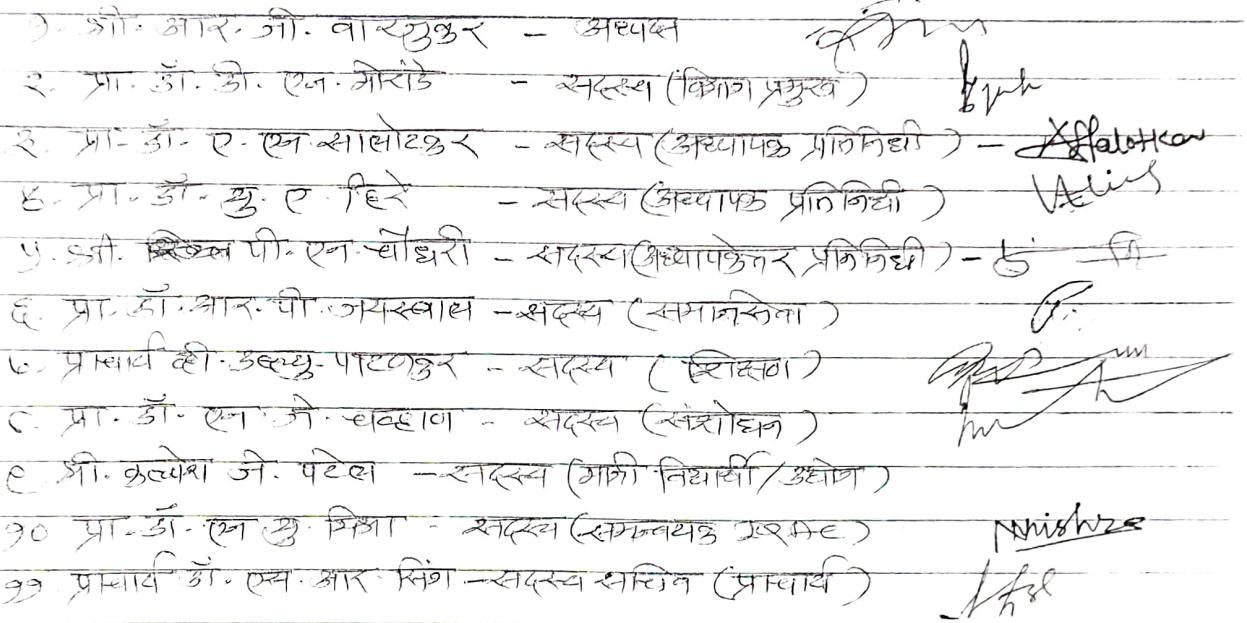 १. श्री. आर. जी. वारुळकर - अध्यक्ष
२. प्रा. डॉ. डी. एन. मोरांडे - सदस्य (विभाग प्रमुख)
३. प्रा. डॉ. ए. एन. सालोटकर - सदस्य (अध्यापक प्रतिनिधी) -
४. प्रा. डॉ. यु. ए. हिरे - सदस्य (अध्यापक प्रतिनिधी)
५. श्री. पी. एन. चौधरी - सदस्य (अध्यापकेत्तर प्रतिनिधी) -
६. प्रा. डॉ. आर. पी. जयस्वाल - सदस्य (समाजसेवा)
७. प्राचार्य व्ही. डब्ल्यु. पाटणकर - सदस्य (शिक्षण)
८. प्रा. डॉ. एन. जे. चव्हाण - सदस्य (संशोधन)
९ श्री. कल्पेश जे. पटेल - सदस्य (माजी विद्यार्थी/उद्योग)
१० प्रा. डॉ. एन. यु. मिश्रा - सदस्य (समन्वयक IQAC)
११ प्राचार्य डॉ. एच. आर. सिंग - सदस्य सचिव (प्राचार्य)